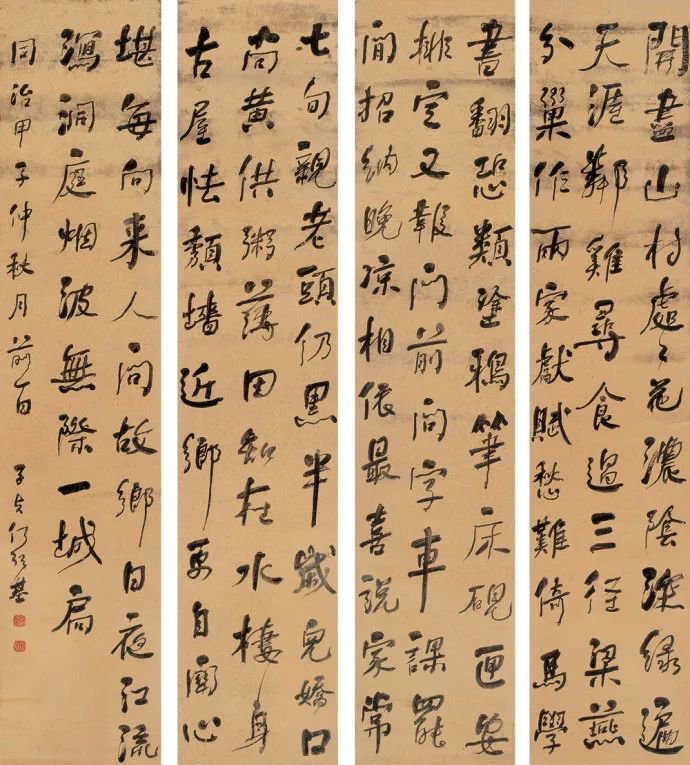 開盡山村處々花濃陰深綠遍
天涯鄰雞尋食過三徑梁燕
分巢作兩家獻賦愁難倚馬學
書翻恐類塗鴉筆床硯匣安
排定又報門前問字車課罷
閒招納晚涼相依最喜說家常
七旬親老頭仍黑半歲兒嬌口
尚黃供粥薄田知在水棲身
古屋怯頹墻近鄉更自關心
堪每向來人問故鄉日夜江流
瀉洞庭烟波無際一城扃
同治甲子仲秋月前一日
子貞何紹基